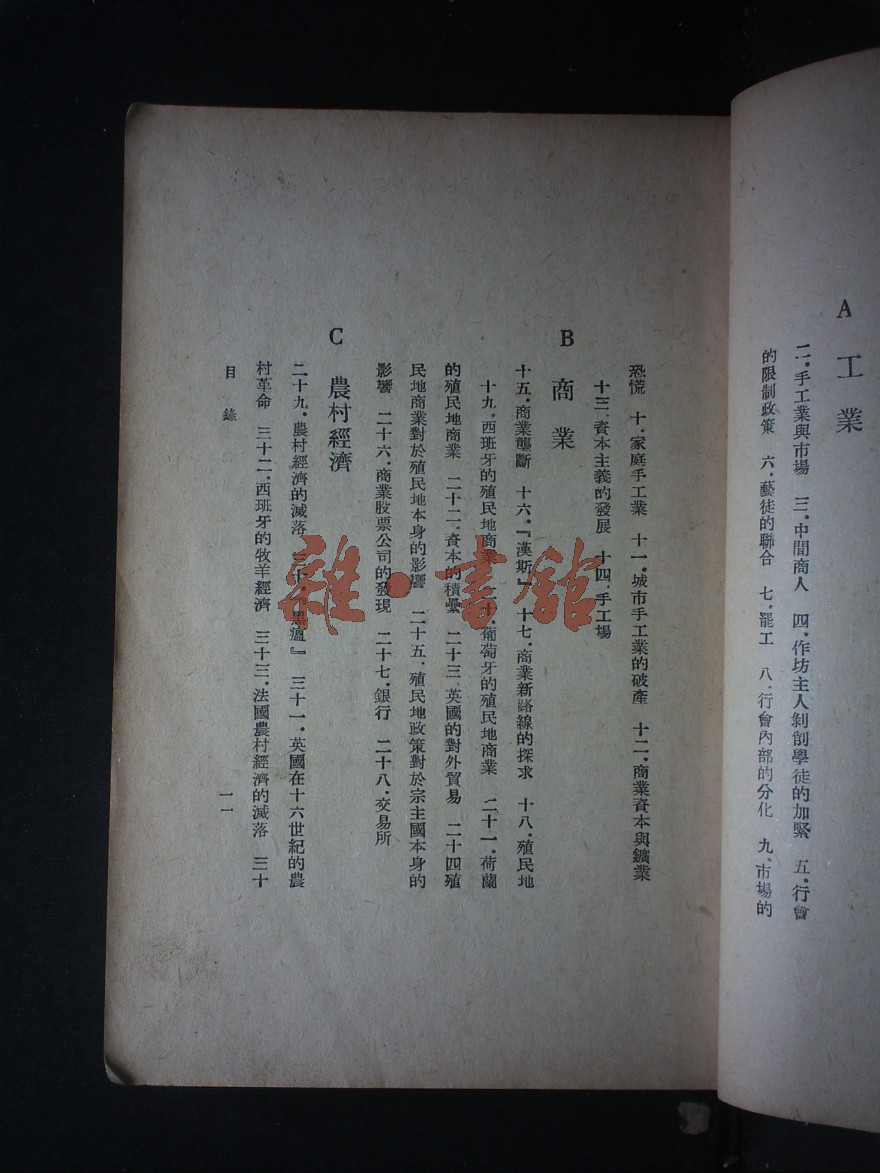 A 工業
二．手工業與市場 三．中間商人 四．作坊主人剝削學徒的加緊 五．行會
的限制政策 六．藝徒的聯合 七．罷工 八．行會內部的分化 九．市場的
恐慌 十．家庭手工業 十一．城市手工業的破產 十二．商業資本與鑛業
十三．資本主義的發展 十四．手工場
B 商業
十五．商業壟斷 十六．『漢斯』 十七．商業新路線的探求 十八．殖民地
十九．西班牙的殖民地商業 二十．葡萄牙的殖民地商業 二十一．荷蘭
的殖民地商業 二十二．資本的積纍 二十三．英國的對外貿易 二十四殖
民地商業對於殖民地本身的影響 二十五．殖民地政策對於宗主國本身的
影響 二十六．商業股票公司的發現 二十七．銀行 二十八．交易所
C 農村經濟
二十九．農村經濟的滅落 三十．『黑瘟』 三十一．英國在十六世紀的農
村革命 三十二．西班牙的牧羊經濟 三十三．法國農村經濟的滅落 三十
目錄
一一
雜·書館